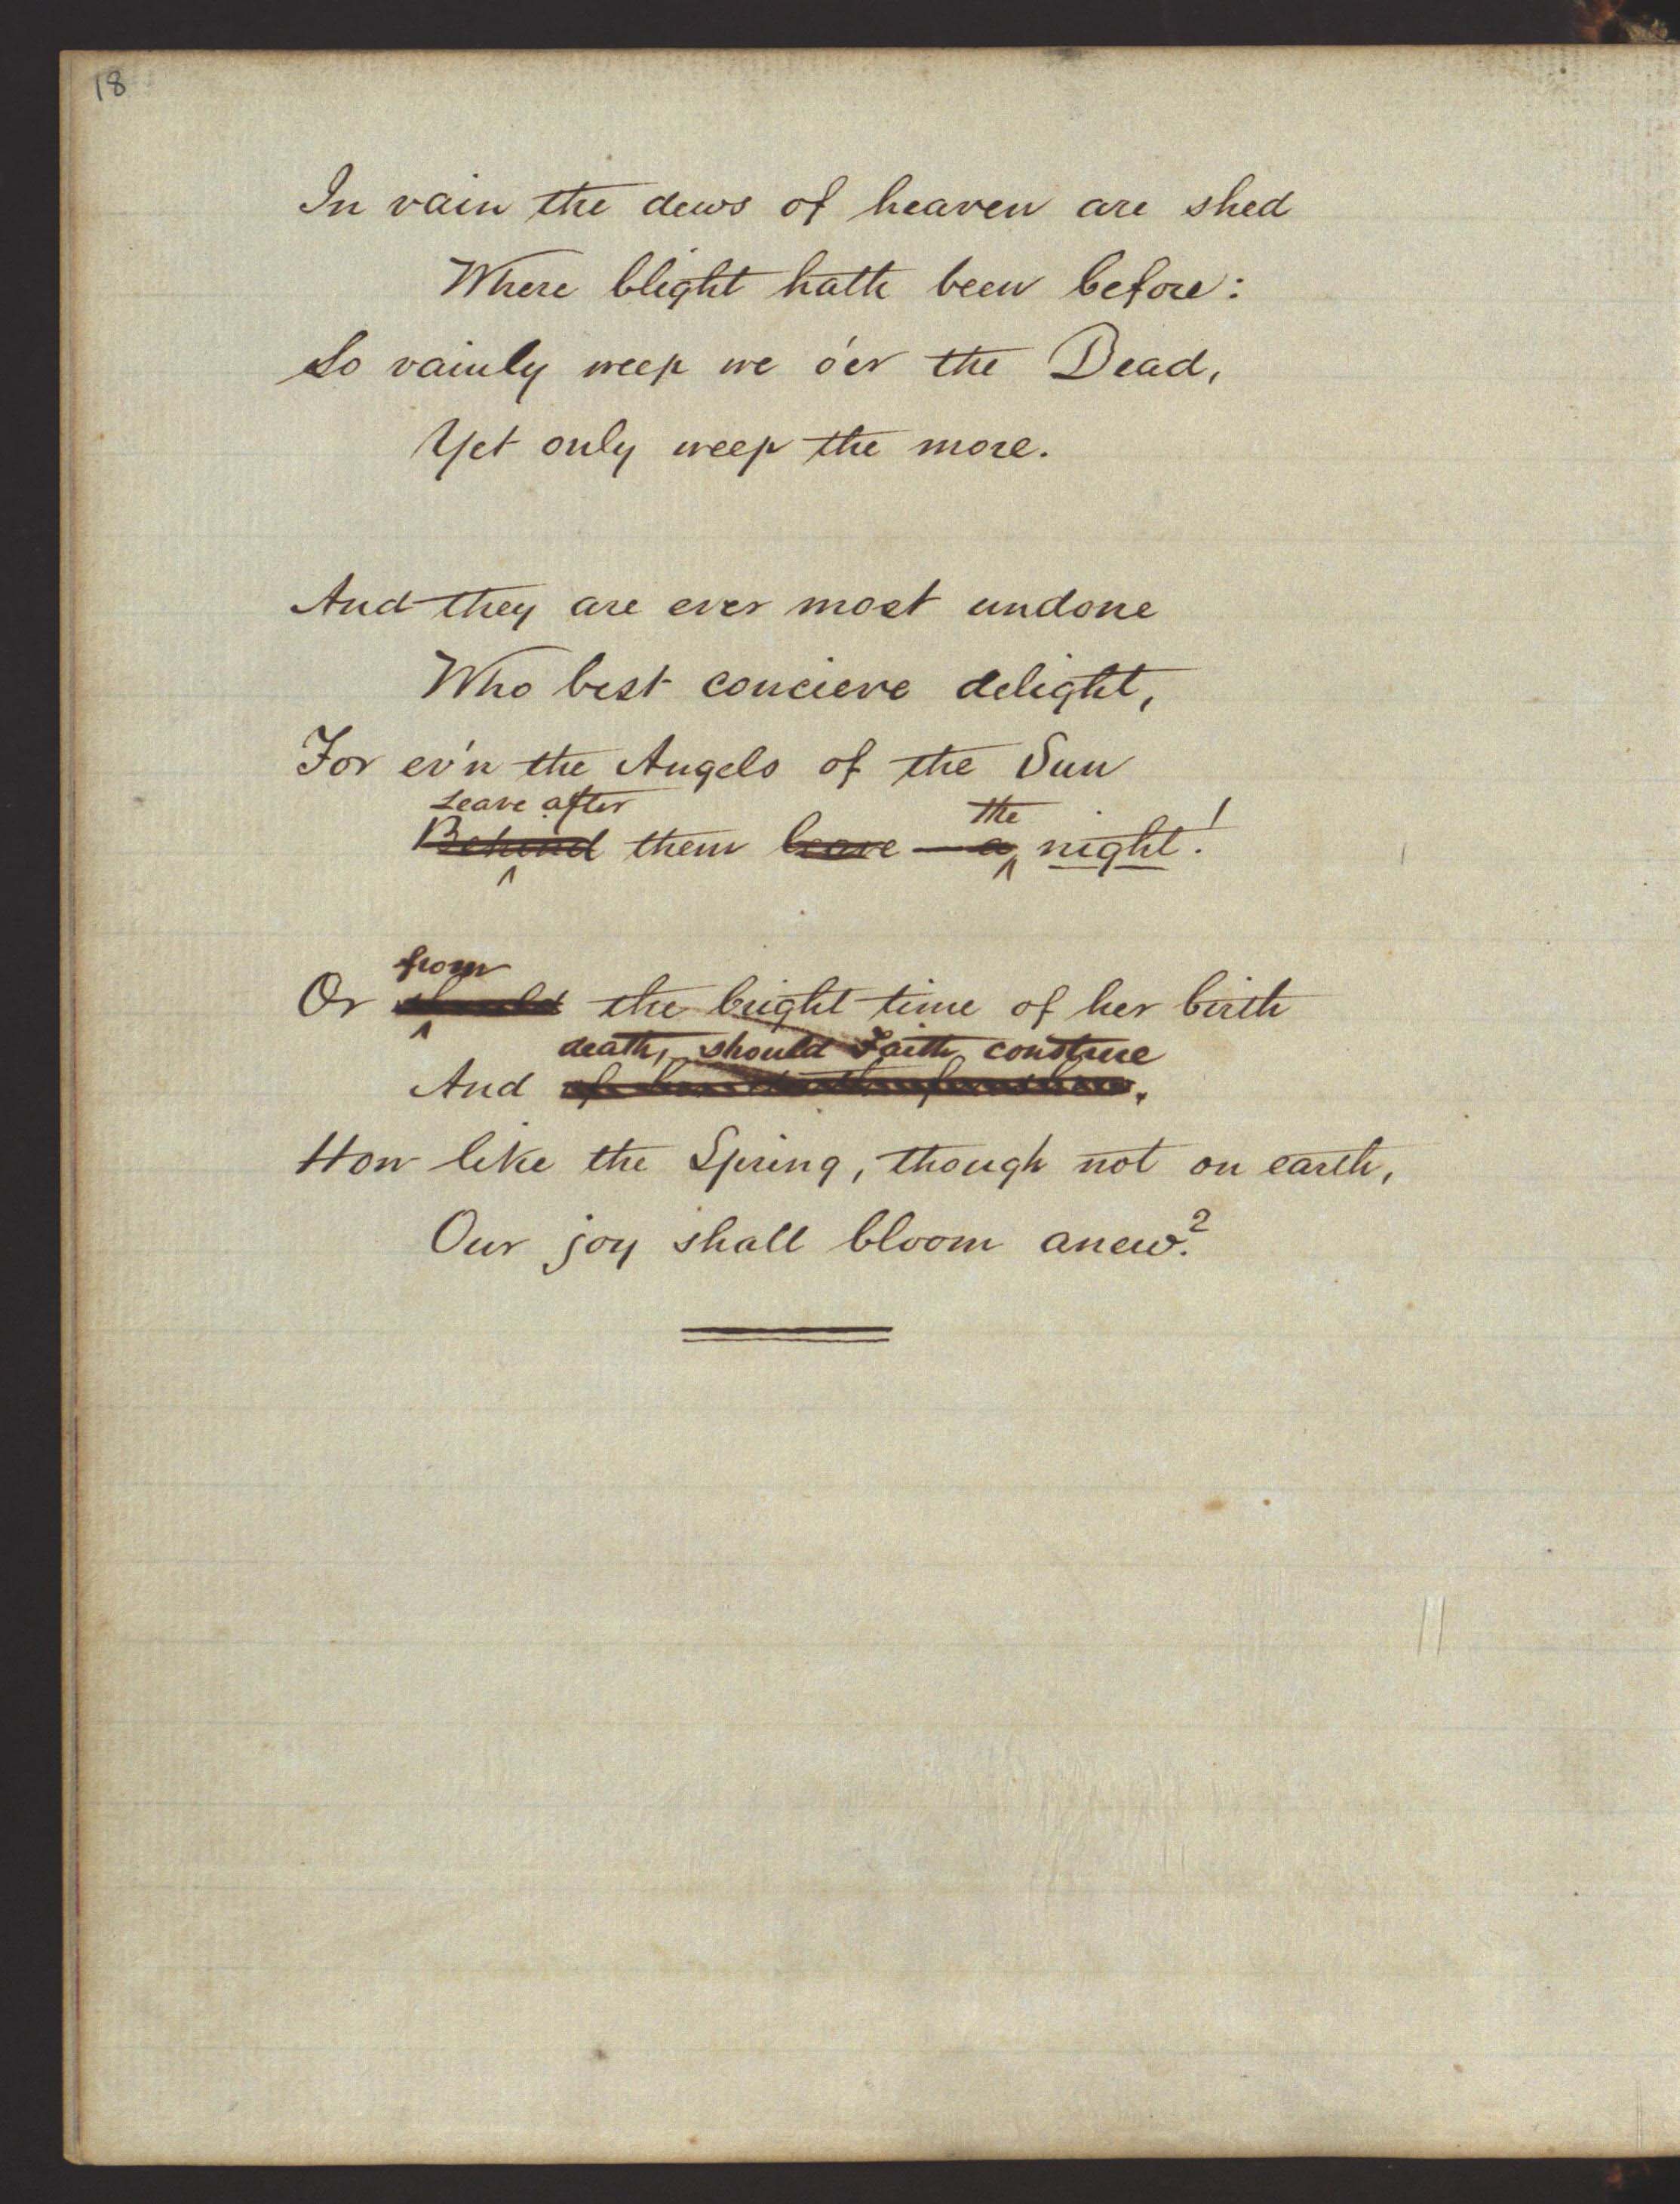 18
In vain the dews of heaven are shed
Where blight hath been before:
So vainly weep we o'er the Dead,
Yet only weep the more.
And they are ever most undone
Who best concieve delight,
For ev'n the Angels of the Sun
Leave after the
Behind them leave — a night!
from
Or should the bright time of her birth
death, should Faith construe
And
How like the Spring, though not on earth,
Our joy shall bloom anew.?